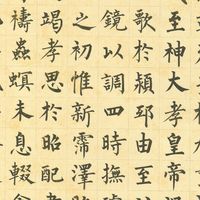 至神大孝皇帝
歌於潁邳由至
鏡以調四時撫
之初惟新霈澤
竭孝思於昭配
禱蟲螟未息輟